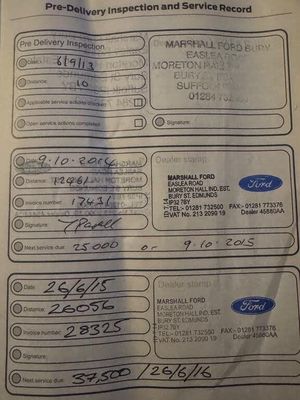 Pre-Delivery Inspection and Service Record
Pre Delivery Inspection
Date: 3/9/13
Distance: 10
Applicable service actions checked
Open service actions completed
MARSHALL FORD BURY
EASLEA ROAD
MORETON HALL IND. EST
BURY ST
SUFFOLK
01284 732
Signature:
Date 9.10.2014
Distance:
Invoice number: 17431
Signature:
Next service due: 25000 or 9.10.2015
Dealer stamp
MARSHALL FORD
EASLEA ROAD
MORETON HALL IND. EST.
BURY ST. EDMUNDS
IP32 7BY
TEL:- 01281 732500 FAX:- 01281 773376
VAT No. 213 2090 19 Dealer 45880AA
Ford
Date: 26/6/15
Distance: 26056
Invoice number: 28325
Signature:
Next service due: 37,500 / 26/6/16
Dealer stamp
MARSHALL FORD
EASLEA ROAD
MORETON HALL IND. EST.
BURY ST. EDMUNDS
IP32 7BY
TEL:- 01281 732500 FAX:- 01281 773376
VAT No. 213 2090 19 Dealer 45880AA
Ford